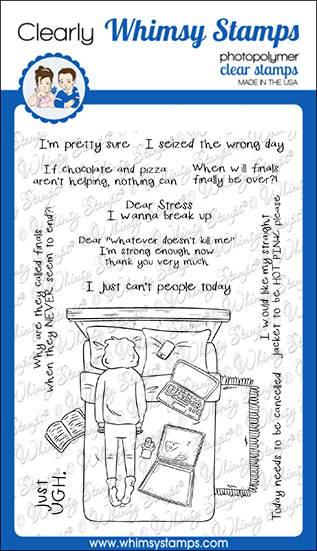 Clearly Whimsy Stamps
photopolymer
clear stamps
MADE IN THE USA
I'm pretty sure I seized the wrong day
If chocolate and pizza
aren't helping, nothing can
When will finals
finally be over?!
Dear Stress
I wanna break up
Dear "whatever doesn't kill me"
I'm strong enough now
thank you very much
I just can't people today
Why are they called finals
when they NEVER seem to end?!
I would like my straight
jacket to be HOT PINK please
Just
UGH.
Today needs to be cancelled
Whimsy Stamps
www.whimsystamps.com